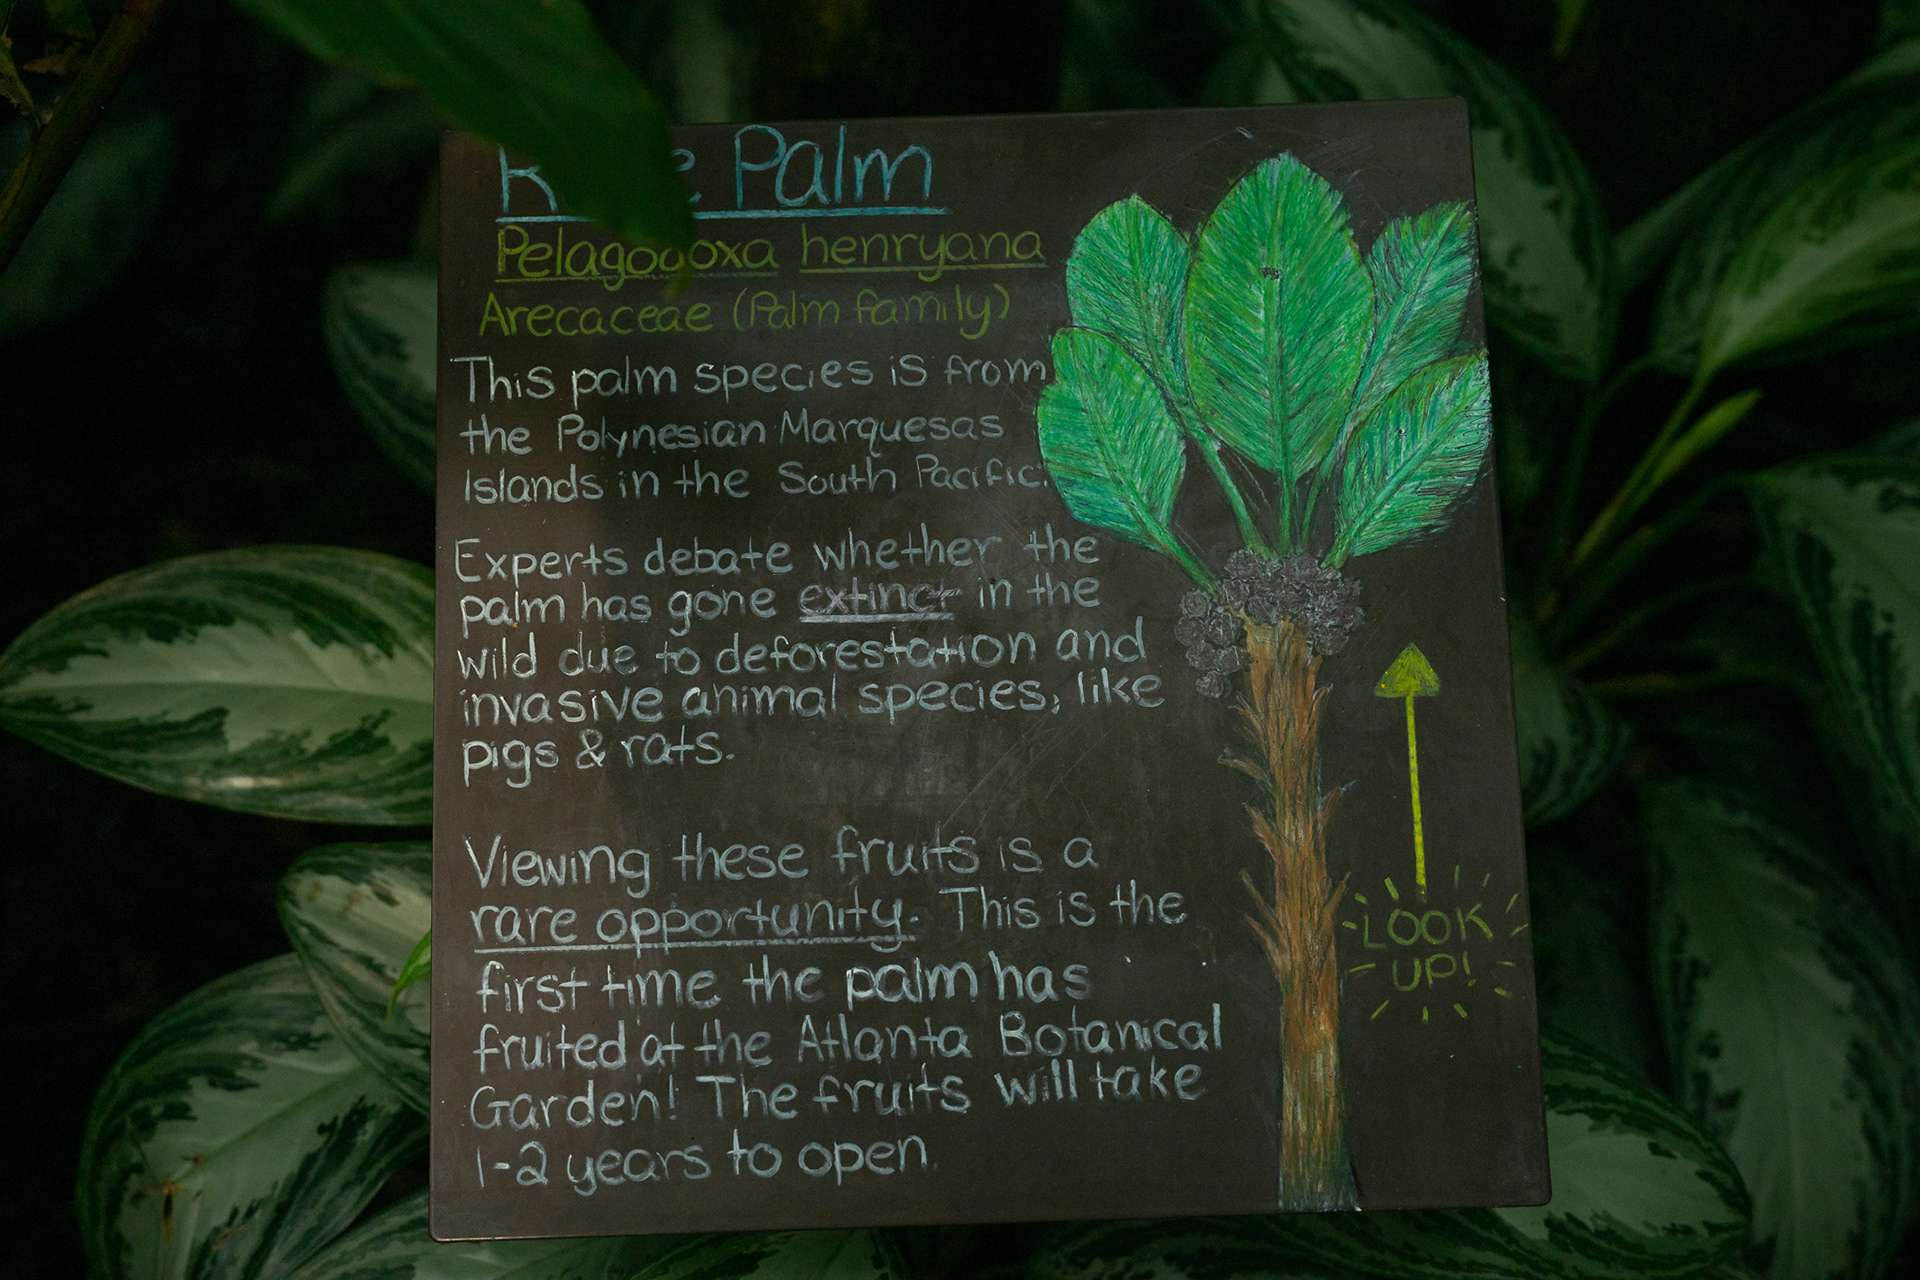 Palm
Pelagodoxa henryana
Arecaceae (Palm family)
This palm species is from
the Polynesian Marquesas
Islands in the South Pacific.
Experts debate whether the
palm has gone extinct in the
wild due to deforestation and
invasive animal species, like
pigs & rats.
Viewing these fruits is a
rare opportunity. This is the
first time the palm has
fruited at the Atlanta Botanical
Garden! The fruits will take
1-2 years to open
LOOK
UP!